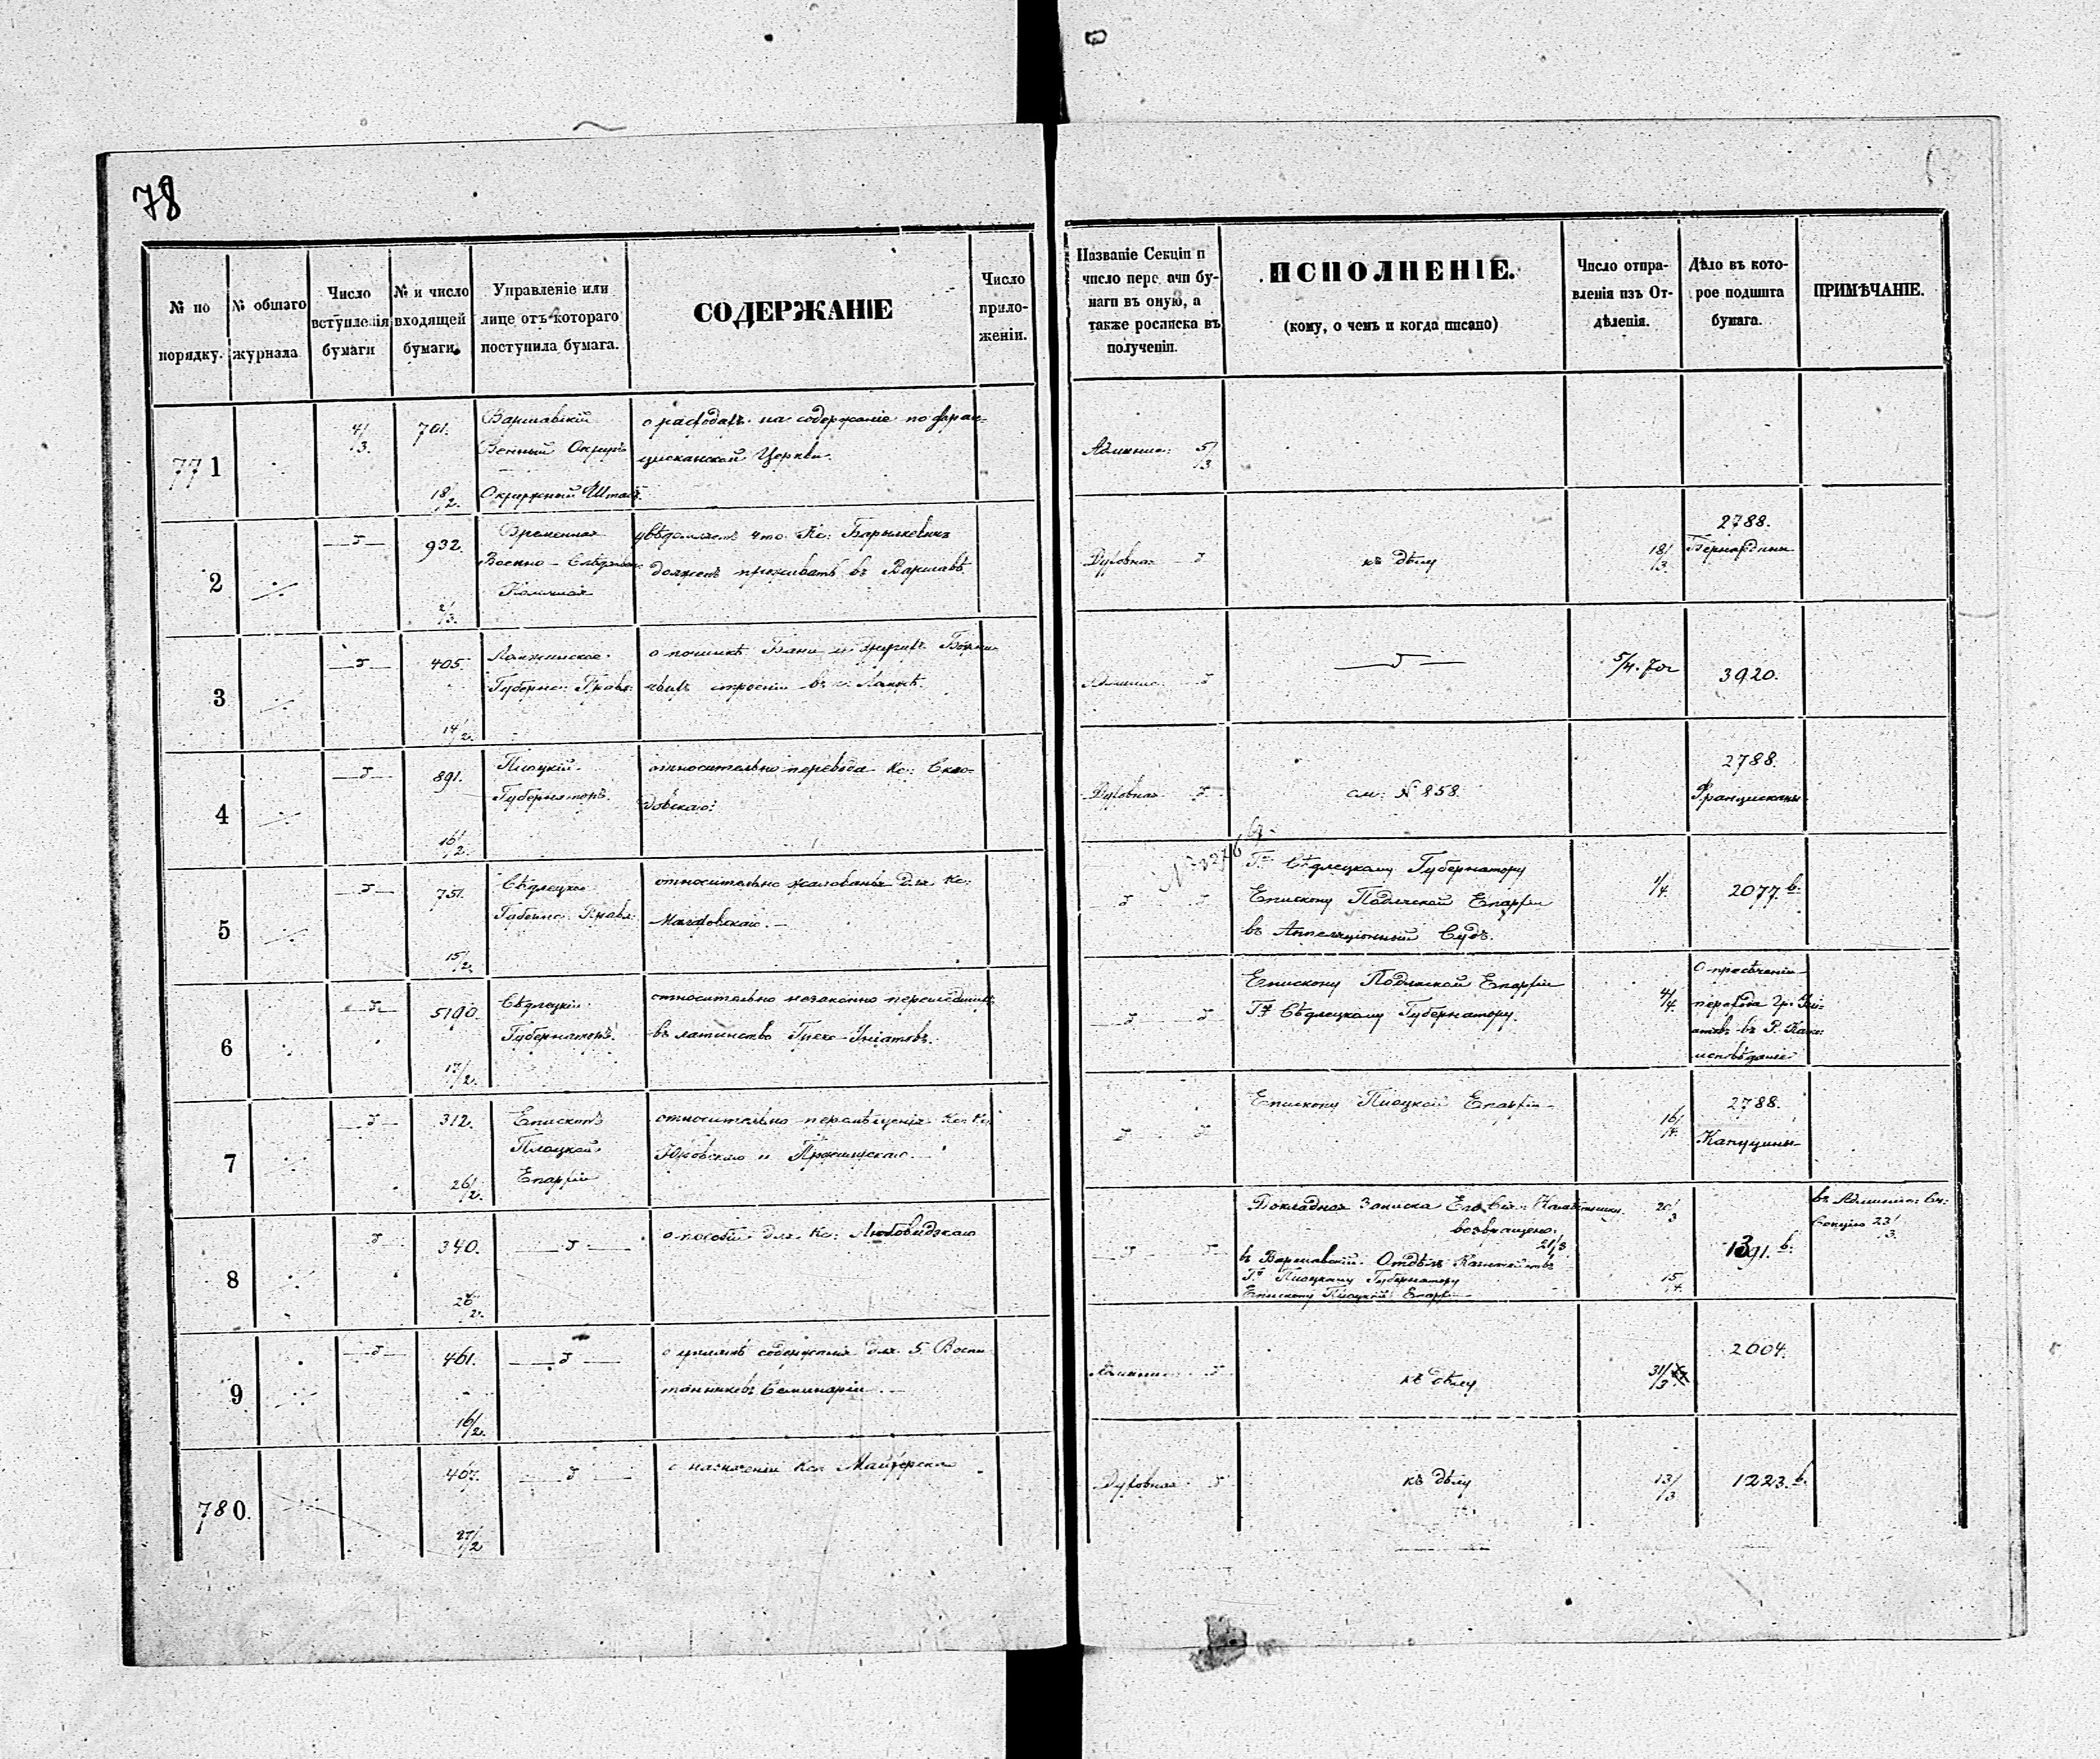 78
№ по порядку.
№ общаго журнала
Число вступленія бумаги
№ и число входящей бумаги.
Управленіе или лице отъ котораго поступила бумага.
СОДЕРЖАНІЕ
Число приложеній.
Названіе Секціи и число перед ачи бумаги въ оную, а также росписка въ полученіи.
ИСПОЛНЕНІЕ.
(кому, о чемъ и когда писано)
Число отправленія изъ Отдѣленія.
Дѣло въ которое подшита бумага.
ПРИМѢЧАНІЕ.
771
4/3.
701.
18/2.
Варшавскій
Военный Округъ
Окружный Штабъ.
о расходахъ на содержаніе по фран-
цисканской Церкви.
Админис: 5/3
2
932.
2/3.
Временная
Военно-Слѣдств
увѣдомляетъ что Кс:
долженъ проживать въ Варшавѣ
Духовная
къ дѣлу
18/3.
2788.
Бернардины
3
405.
14/2.
Ломжинское
Губернс: Правл:
о починкѣ Бани и другихъ
строеній въ г. Ломжѣ.
Админис:
5/4.
3920.
4
891.
16/2.
Плоцкій
Губернаторъ.
относительно перевода Кс: Скло-
довскаго:
Духовная
см: № 858.
2788.
Францискане
5
751.
15/2.
Сѣдлецкое
Губернс: Правл:
относительно жалованья для Кс:
Г-ну Сѣдлецкому Губернатору
Епископу Подляской Епархіи
въ Аппеляціонный Судъ.
1/4.
2077 b.
6
5190.
17/2.
Сѣдлецкій
Губернаторъ.
относительно незаконно перешедшихъ
въ латинство Греко-Уніатовъ.
Епископу Подляской Епархіи
Г-ну Сѣдлецкому Губернатору.
4/4.
О пресѣченіи
перехода Гр. Уні-
атовъ въ Р. Като:
исповѣданіе
7
312.
26/2.
Епископъ
Плоцкой
Епархіи
относительно перемѣщенія Кс: Кс:
Епископу Плоцкой Епархіи
16/4.
2788.
Капуцины
8
340.
26/2.
о пособіи для Кс: Любовидзкаго
Докладная Записка Его Сія:
возвращена.
21/3
въ Варшавскій Отдѣлъ Казначейства
Г-ну Плоцкому Губернатору
Епископу Плоцкой Епархіи
20/3
15/4.
1391. b.
въ Админис: Се:
Секцію 23/3.
9
461.
16/2.
содержанія для 5 Воспи
танниковъ Семинаріи
Админис:
къ дѣлу
31/3
2004.
780.
407.
27/2
о назначеніи Кс:
Духовная
къ дѣлу
13/3
1223. b.